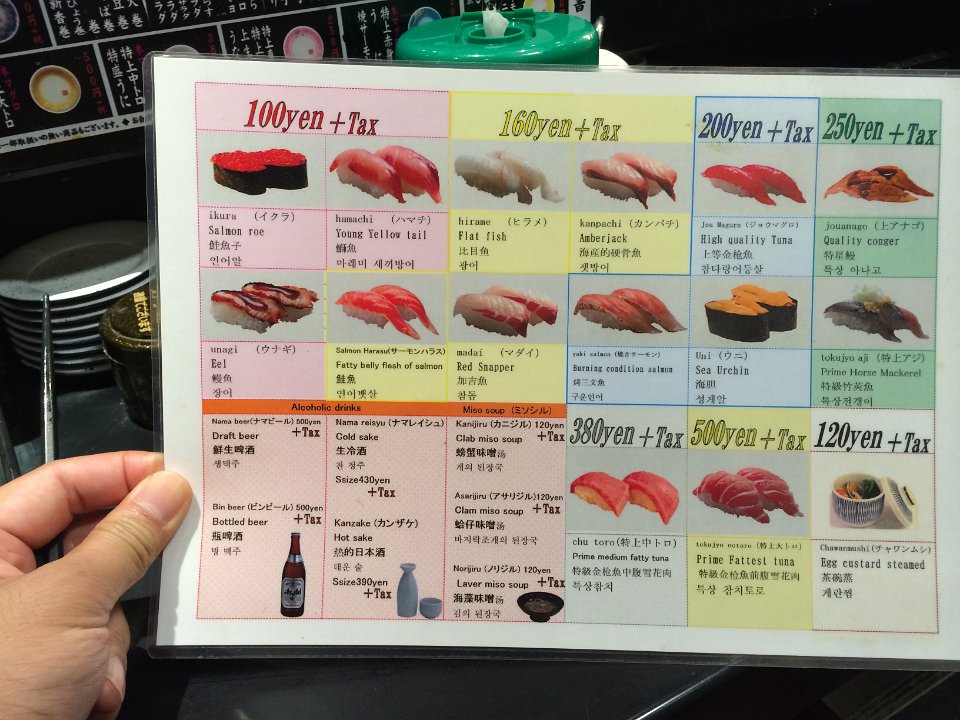 100yen +Tax
160yen +Tax
200yen +Tax
250yen +Tax
ikura （イクラ）
Salmon roe
鮭魚子
연어알
hamachi （ハマチ）
Young Yellow tail
鰤魚
마래미 새끼방어
hirame （ヒラメ）
Flat fish
比目魚
광어
kanpachi（カンパチ）
Amberjack
海産的硬骨魚
잿방어
Jou Maguro（ジョウマグロ）
High quality Tuna
上等金枪魚
참다랑어등살
jouanago（上アナゴ）
Quality conger
特星鰻
특상 아나고
unagi （ウナギ）
Eel
鰻魚
장어
Salmon Harasu(サーモンハラス)
Fatty belly flesh of salmon
鮭魚
연어뱃살
madai （マダイ）
Red Snapper
加吉魚
참돔
yaki salmon（焼きサーモン）
Burning condition salmon
烤三文魚
구운인어
Uni（ウニ）
Sea Urchin
海胆
성게알
tokujyo aji（特上アジ）
Prime Horse Mackerel
特級竹莢魚
특상전갱이
Alcoholic drinks
Miso soup（ミソシル）
Nama beer(ナマビール) 500yen
+Tax
Draft beer
鮮生啤酒
생맥주
Bin beer (ビンビール) 500yen
+Tax
Bottled beer
瓶啤酒
병 맥주
Asahi
Nama reisyu (ナマレイシュ)
Cold sake
生冷酒
찬 청주
Ssize430yen
+Tax
Kanzake (カンザケ)
Hot sake
热的日本酒
데운 술
Ssize390yen
+Tax
Kanijiru (カニジル) 120yen
+Tax
Clab miso soup
螃蟹味噌汤
게의 된장국
Asarijiru (アサリジル)120yen
+Tax
Clam miso soup
蛤仔味噌汤
바지락조개의 된장국
Norijiru (ノリジル) 120yen
+Tax
Laver miso soup
海藻味噌汤
김의 된장국
380yen +Tax
500yen +Tax
120yen +Tax
chu toro(特上中トロ)
Prime medium fatty tuna
特級金枪魚中腹雪花肉
특상참치
tokujyo ootoro（特上大トロ）
Prime Fattest tuna
特級金枪魚前腹雪花肉
특상 참치토로
Chawanmushi(チャワンムシ)
Egg custard steamed
茶碗蒸
계란찜